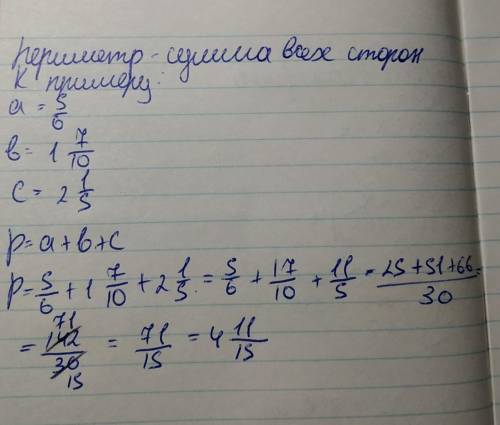 периметр - сумма всех сторон
К примеру:
a = 5/6
в = 1 7/10
c = 2 1/5
p = a + в + c
P = 5/6 + 1 7/10 + 2 1/5 = 5/6 + 17/10 + 11/5 = 25 + 51 + 66/30 =
= 142/30 71/15 = 71/15 = 4 11/15